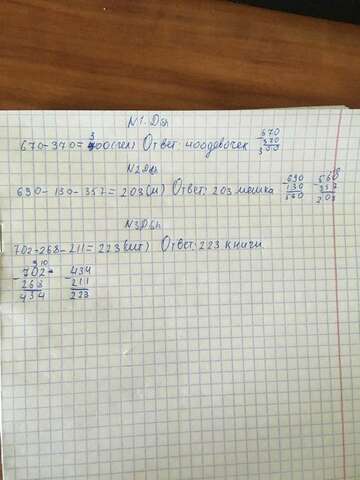 N1. Dsh
670-370=300(чел) Ответ: 400девочек
670
-370
300
N2Dsh
690-130-357=203(м) Ответ: 203 мешка
-690
130
560
-560
357
203
N3Dsh
702-268-211=223(шт) Ответ: 223 книги
9 10
-702
268
434
-434
211
223